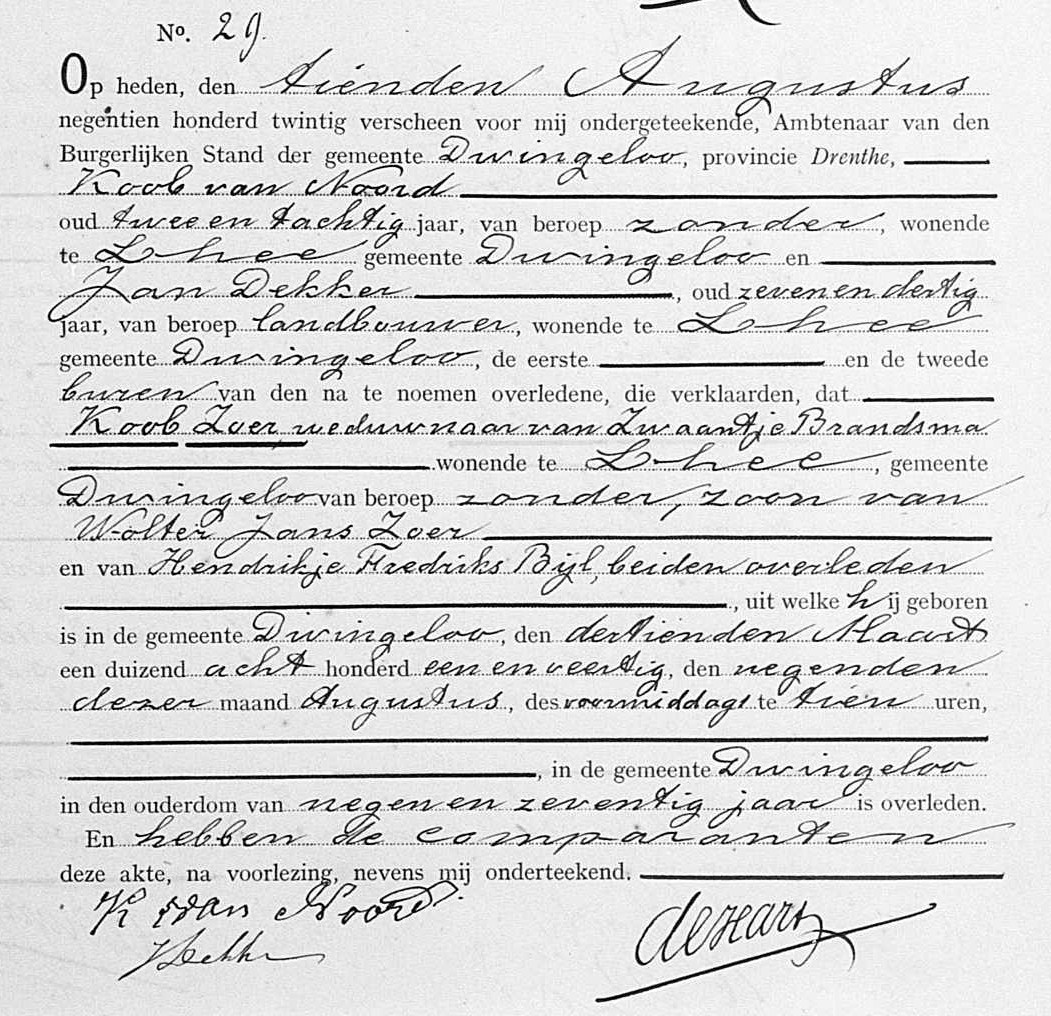 No. 29.
Op heden, den tienden Augustus
negentien honderd twintig verscheen voor mij ondergeteekende, Ambtenaar van den
Burgerlijken Stand der gemeente Dwingeloo, provincie Drenthe,
Koob van Noord
oud twee en tachtig jaar, van beroep zonder, wonende
te Lhee gemeente Dwingeloo en
Jan Dekker, oud zeven en dertig
jaar, van beroep landbouwer, wonende te Lhee
gemeente Dwingeloo, de eerste en de tweede
buren van den na te noemen overledene, die verklaarden, dat
Koob Zoer, weduwnaar van Zwaantje Brandsma
wonende te Lhee, gemeente
Dwingeloo van beroep zonder, zoon van
Wolter Jans Zoer
en van Hendrikje Fredriks Bijl, beiden overleden
, uit welke hij geboren
is in de gemeente Dwingeloo, den dertienden Maart
een duizend acht honderd een en veertig, den negenden
dezer maand Augustus, des voormiddags te tien uren,
, in de gemeente Dwingeloo
in den ouderdom van negen en zeventig jaar is overleden.
En hebben de comparanten
deze akte, na voorlezing, nevens mij onderteekend.
K van Noord.
J Dekker